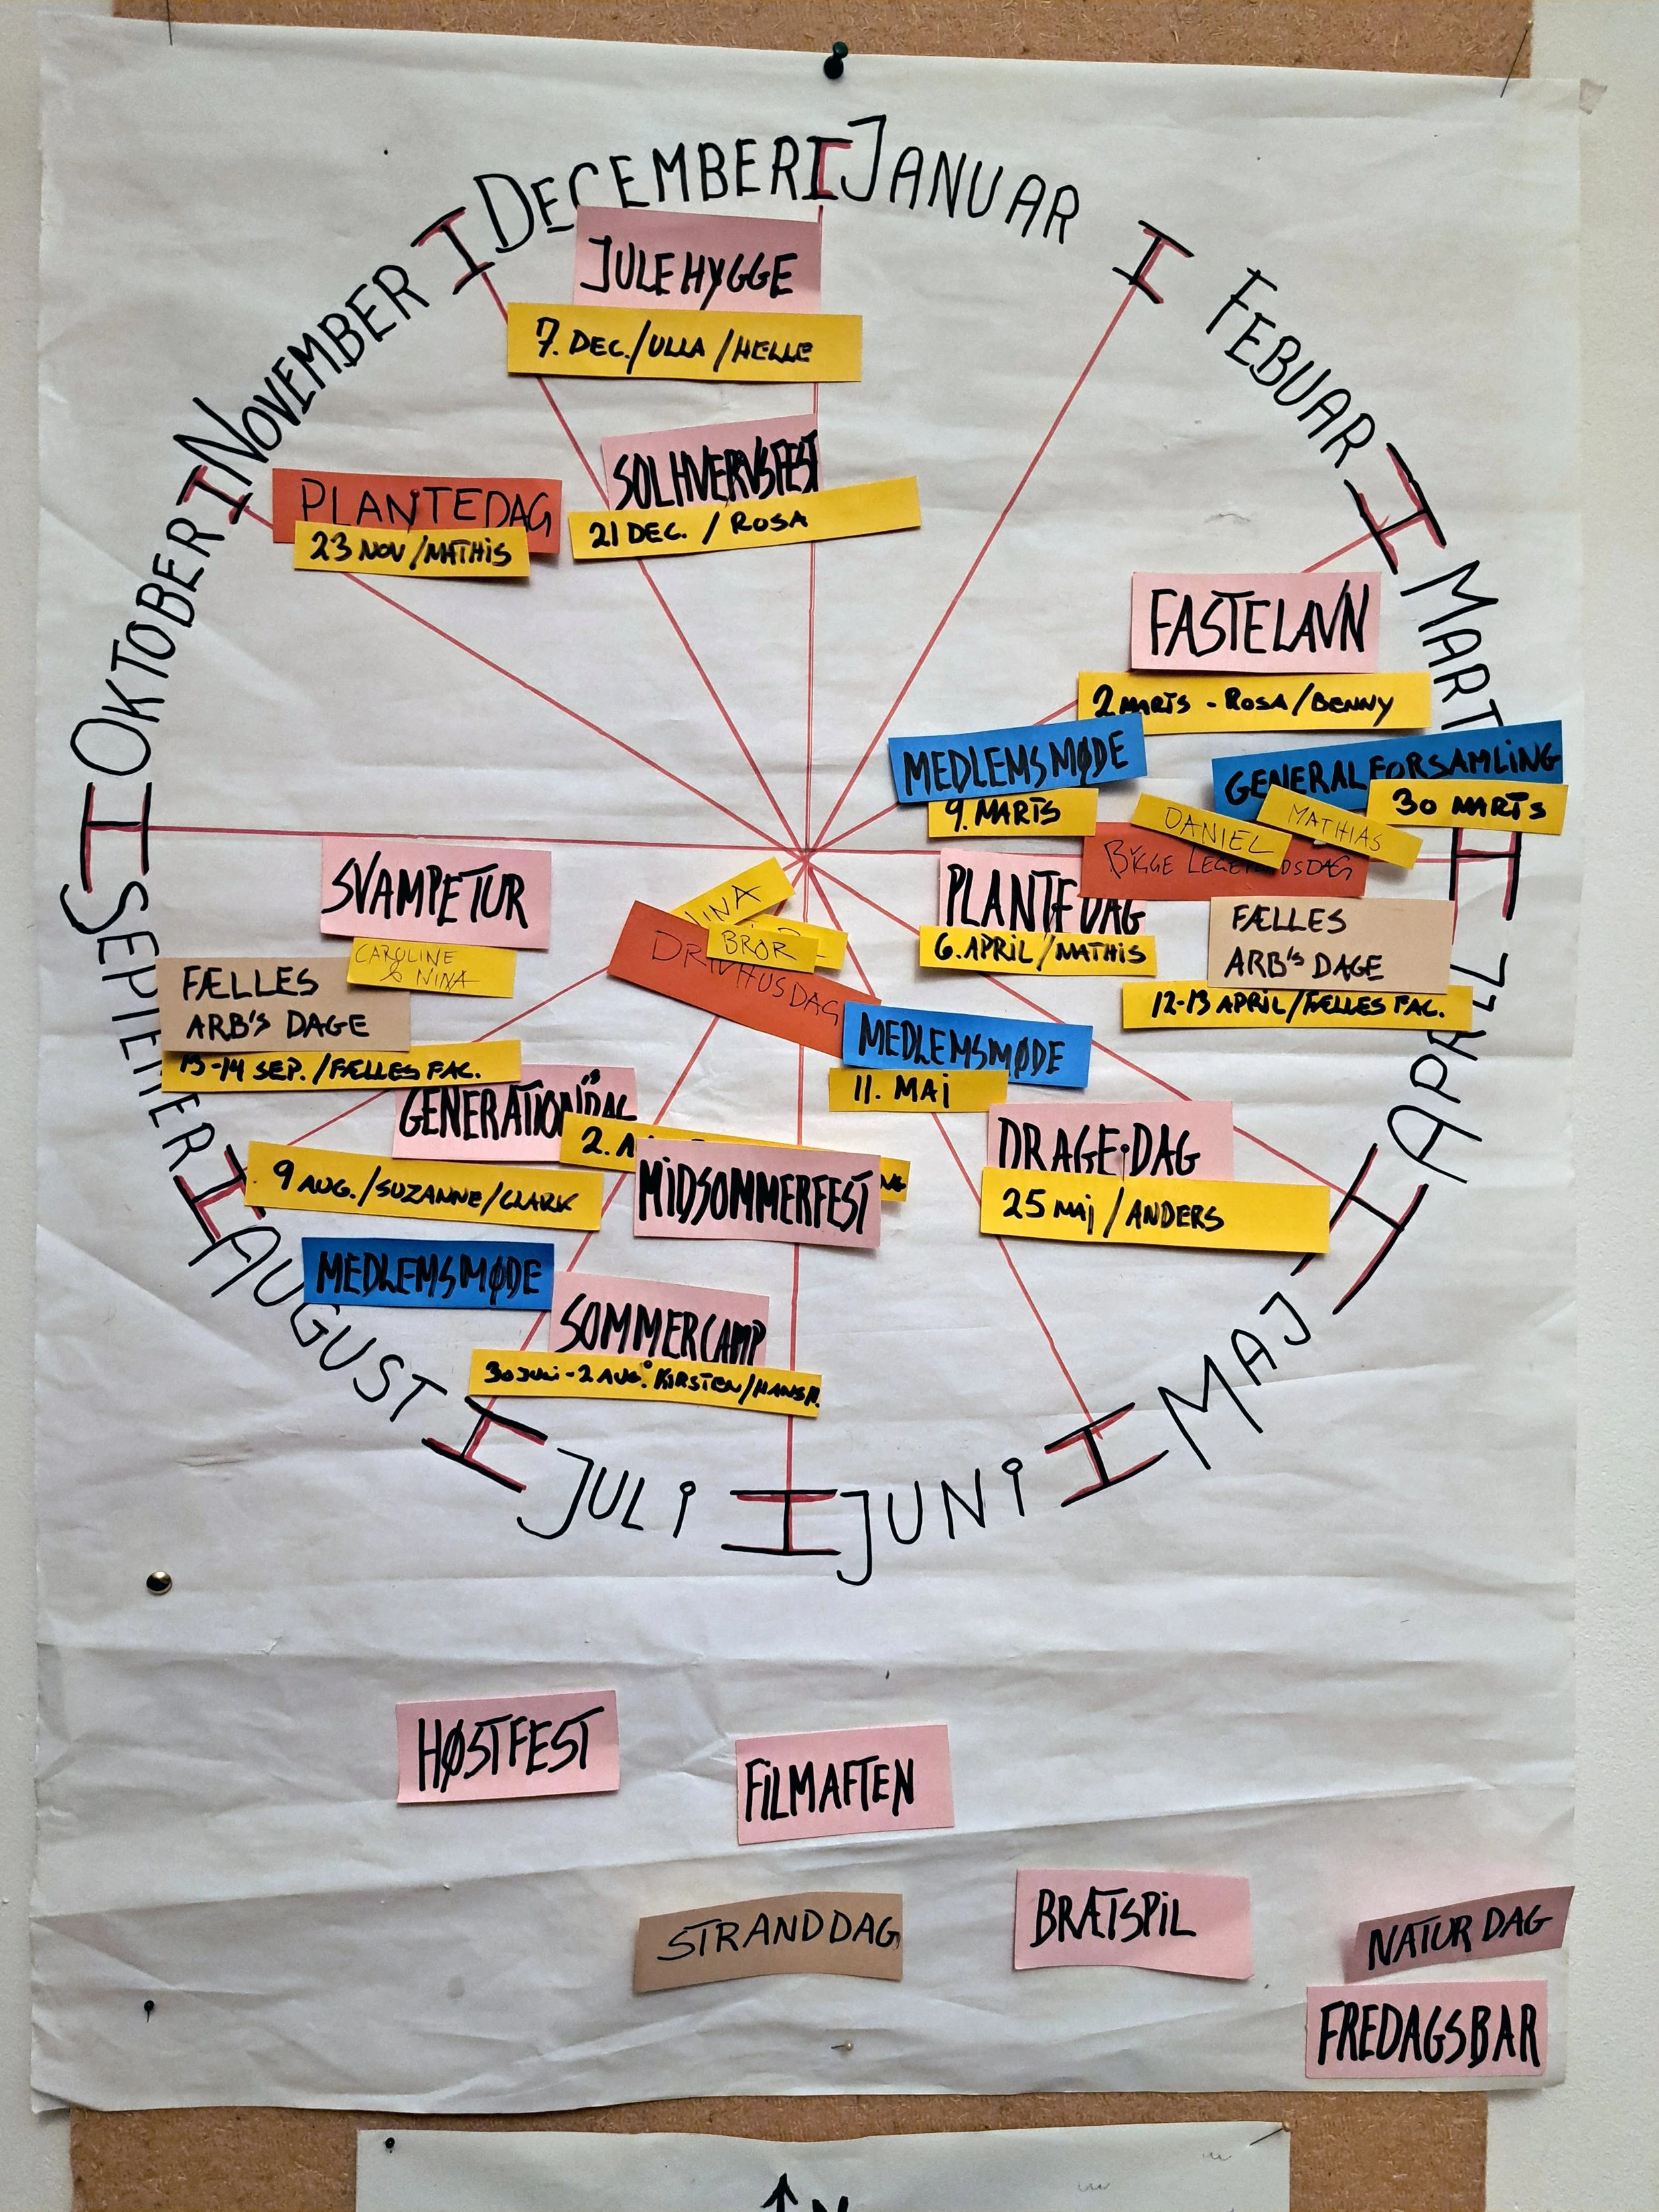 DECEMBER
JANUAR
FEBUAR
MART
APRIL
MAJ
JUNI
JULI
AUGUST
OKTOBER
NOVEMBER
JULEHYGGE
7. DEC./ULLA/HELLE
SOLHVERVSFEST
21 DEC. / ROSA
PLANTEDAG
23 NOV/MATHIS
FASTELAVN
2 MARTS - ROSA/BENNY
MEDLEMSMØDE
9. MARTS
GENERALFORSAMLING
30 MARTS
DANIEL
MATHIAS
BYGGE
PLANTEDAG
6. APRIL/MATHIS
FÆLLES
ARB'S DAGE
12-13 APRIL/FÆLLES FAC.
SVAMPETUR
CAROLINE
& NINA
FÆLLES
ARB'S DAGE
13-14 SEP./FÆLLES FAC.
NINA
BROR
DRIVHUSDAG
MEDLEMSMØDE
11. MAI
DRAGE-DAG
25 MAJ/ANDERS
GENERATIONSDAG
9 AUG./SUZANNE/CLARK
2. A
MIDSOMMERFEST
MEDLEMSMØDE
SOMMERCAMP
30 JULI-2 AUG. KIRSTEN/HANS P.
HØSTFEST
FILMAFTEN
STRANDDAG
BRÆTSPIL
NATUR DAG
FREDAGSBAR
N